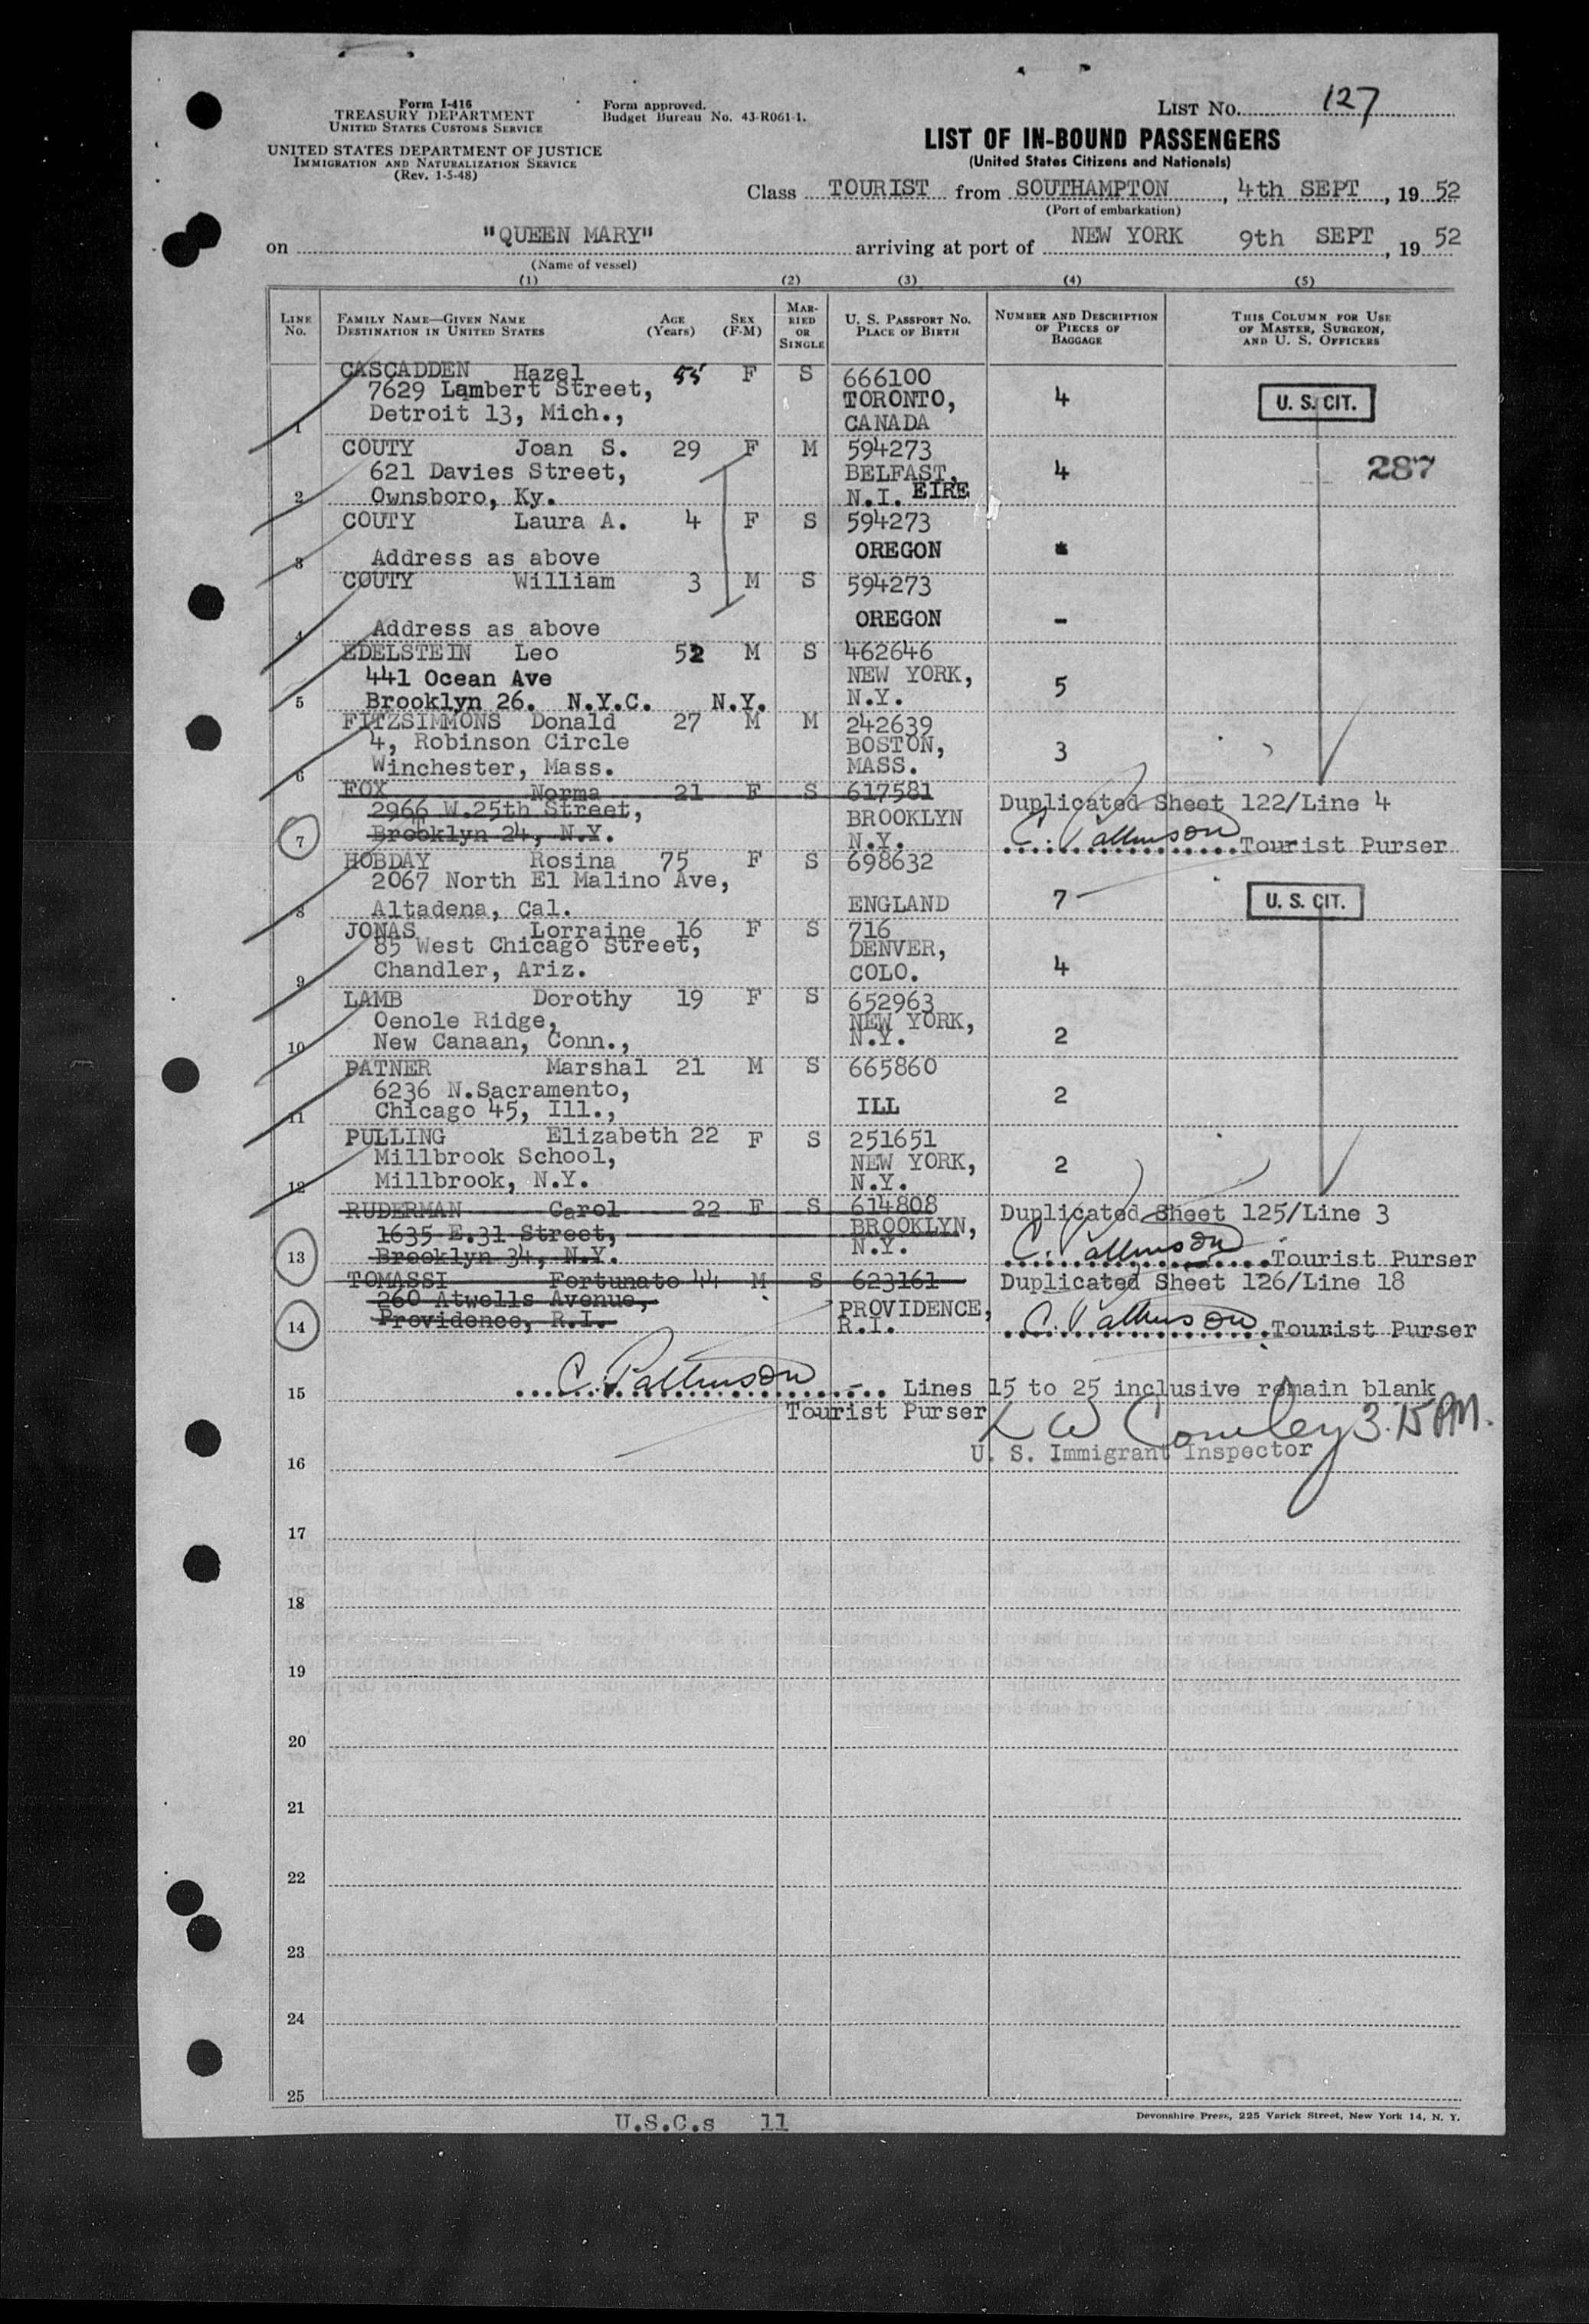 Form I-416
TREASURY DEPARTMENT
UNITED STATES CUSTOMS SERVICE
UNITED STATES DEPARTMENT OF JUSTICE
IMMIGRATION AND NATURALIZATION SERVICE
(Rev. 1-5-48)
Form approved.
Budget Bureau No. 43-R061-1.
LIST NO. 127
LIST OF IN-BOUND PASSENGERS
(United States Citizens and Nationals)
Class TOURIST from SOUTHAMPTON, 4th SEPT, 19 52
(Port of embarkation)
on "QUEEN MARY" arriving at port of NEW YORK 9th SEPT, 19 52
(Name of vessel)
(1) (2) (3) (4) (5)
LINE NO.
FAMILY NAME—GIVEN NAME
DESTINATION IN UNITED STATES
AGE (Years)
SEX (F-M)
MARRIED OR SINGLE
U. S. PASSPORT NO.
PLACE OF BIRTH
NUMBER AND DESCRIPTION OF PIECES OF BAGGAGE
THIS COLUMN FOR USE OF MASTER, SURGEON, AND U. S. OFFICERS
CASCADDEN Hazel 55 F S 666100
7629 Lambert Street, TORONTO, 4 U. S. CIT.
1 Detroit 13, Mich., CANADA
COUTY Joan S. 29 F M 594273
621 Davies Street, BELFAST, 4 287
2 Ownsboro, Ky. N.I. EIRE
COUTY Laura A. 4 F S 594273
3 Address as above OREGON
COUTY William 3 M S 594273
4 Address as above OREGON -
EDELSTEIN Leo 52 M S 462646
441 Ocean Ave NEW YORK, 5
5 Brooklyn 26. N.Y.C. N.Y. N.Y.
FITZSIMMONS Donald 27 M M 242639
4, Robinson Circle BOSTON, 3
6 Winchester, Mass. MASS.
FOX Norma 21 F S 617581 Duplicated Sheet 122/Line 4
2966 W.25th Street, BROOKLYN
7 Brooklyn 24, N.Y. N.Y. C. Pattinson Tourist Purser
HOBDAY Rosina 75 F S 698632
2067 North El Malino Ave, 7 U. S. CIT.
8 Altadena, Cal. ENGLAND
JONAS Lorraine 16 F S 716
85 West Chicago Street, DENVER, 4
9 Chandler, Ariz. COLO.
LAMB Dorothy 19 F S 652963
Oenole Ridge, NEW YORK, 2
10 New Canaan, Conn., N.Y.
PATNER Marshal 21 M S 665860
6236 N.Sacramento, 2
11 Chicago 45, Ill., ILL
PULLING Elizabeth 22 F S 251651
Millbrook School, NEW YORK, 2
12 Millbrook, N.Y. N.Y.
RUDERMAN Carol 22 F S 614808 Duplicated Sheet 125/Line 3
1635 E.31 Street, BROOKLYN,
13 Brooklyn 34, N.Y. N.Y. C. Pattinson Tourist Purser
TOMASSI Fortunato 44 M S 623161 Duplicated Sheet 126/Line 18
260 Atwells Avenue, PROVIDENCE,
14 Providence, R.I. R.I. C. Pattinson Tourist Purser
15 C. Pattinson Lines 15 to 25 inclusive remain blank
Tourist Purser L W Cowley 3.15 PM.
U. S. Immigrant Inspector
16
17
18
19
20
21
22
23
24
25
U.S.C.s 11
Devonshire Press, 225 Varick Street, New York 14, N. Y.